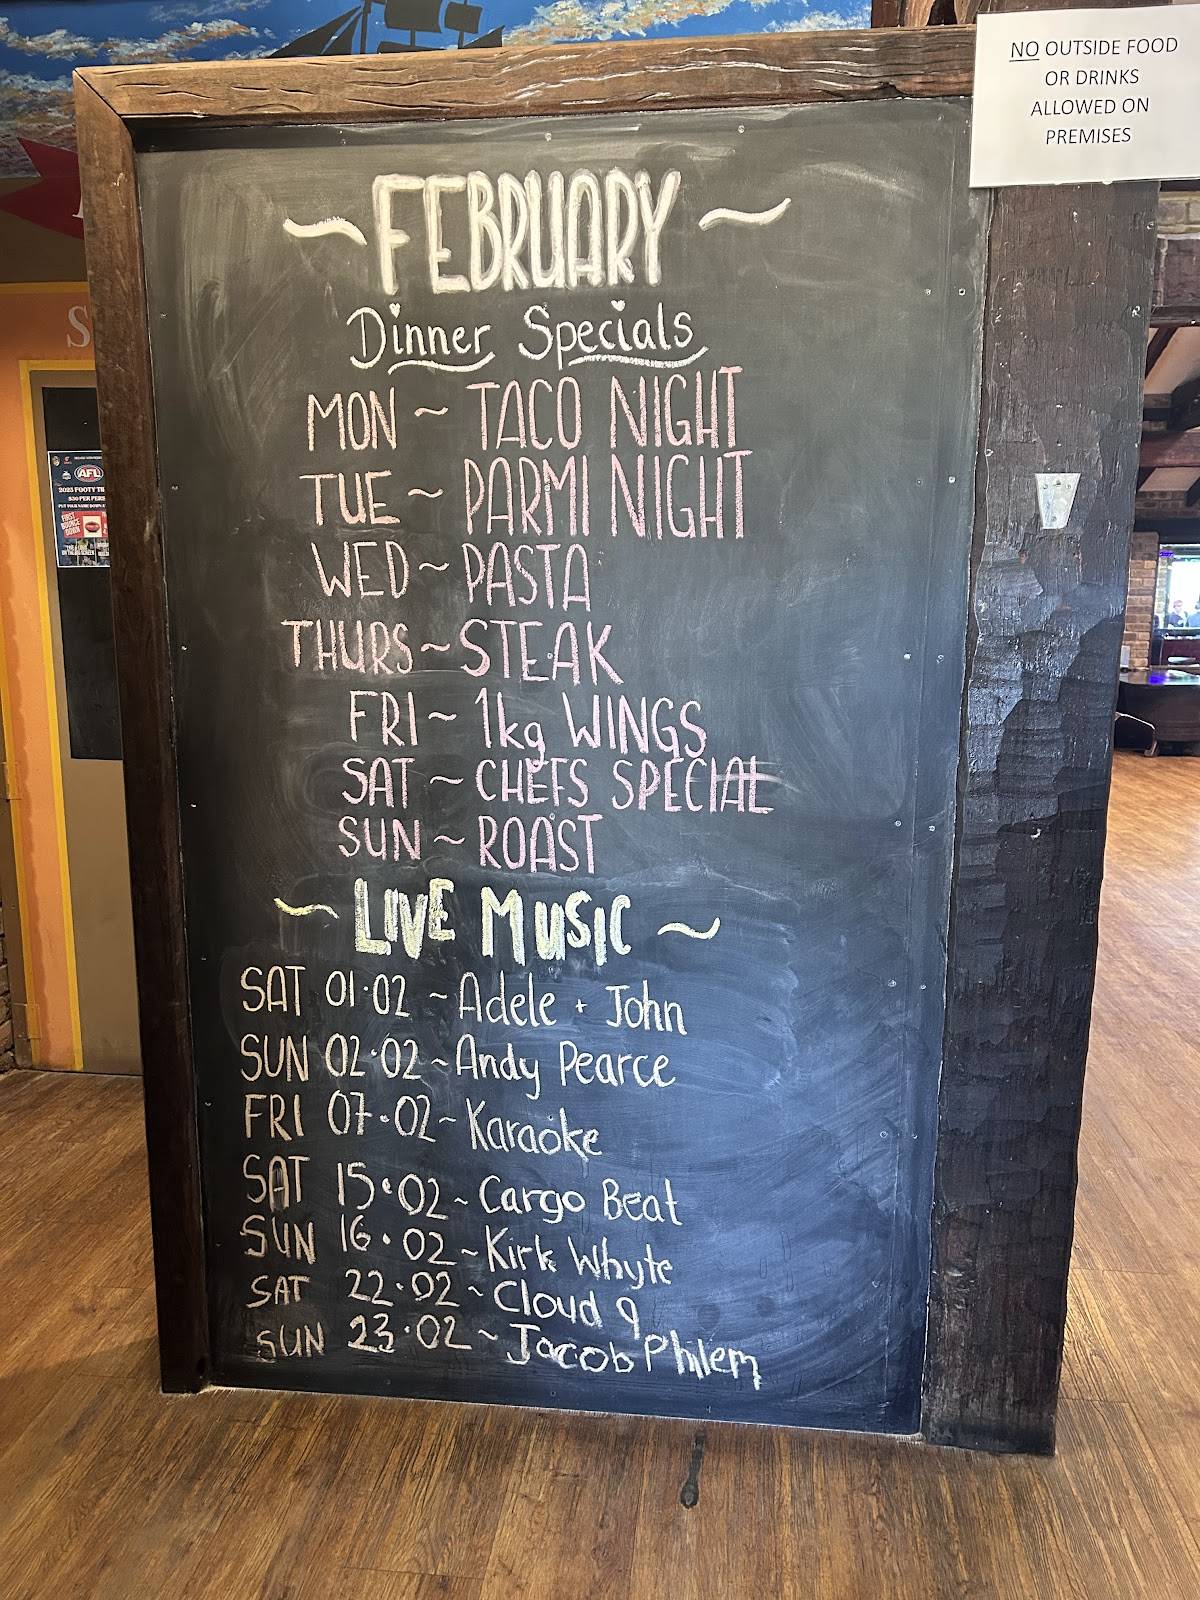 NO OUTSIDE FOOD
OR DRINKS
ALLOWED ON
PREMISES
~ FEBRUARY ~
Dinner Specials
MON ~ TACO NIGHT
TUE ~ PARMI NIGHT
WED ~ PASTA
THURS ~ STEAK
FRI ~ 1kg WINGS
SAT ~ CHEFS SPECIAL
SUN ~ ROAST
~ LIVE MUSIC ~
SAT 01.02 ~ Adele + John
SUN 02.02 ~ Andy Pearce
FRI 07.02 ~ Karaoke
SAT 15.02 ~ Cargo Beat
SUN 16.02 ~ Kirk Whyte
SAT 22.02 ~ Cloud 9
SUN 23.02 ~ Jacob Philem
S
AFL
$30 PER PERS
FIRST
BOUNCE
DOWN